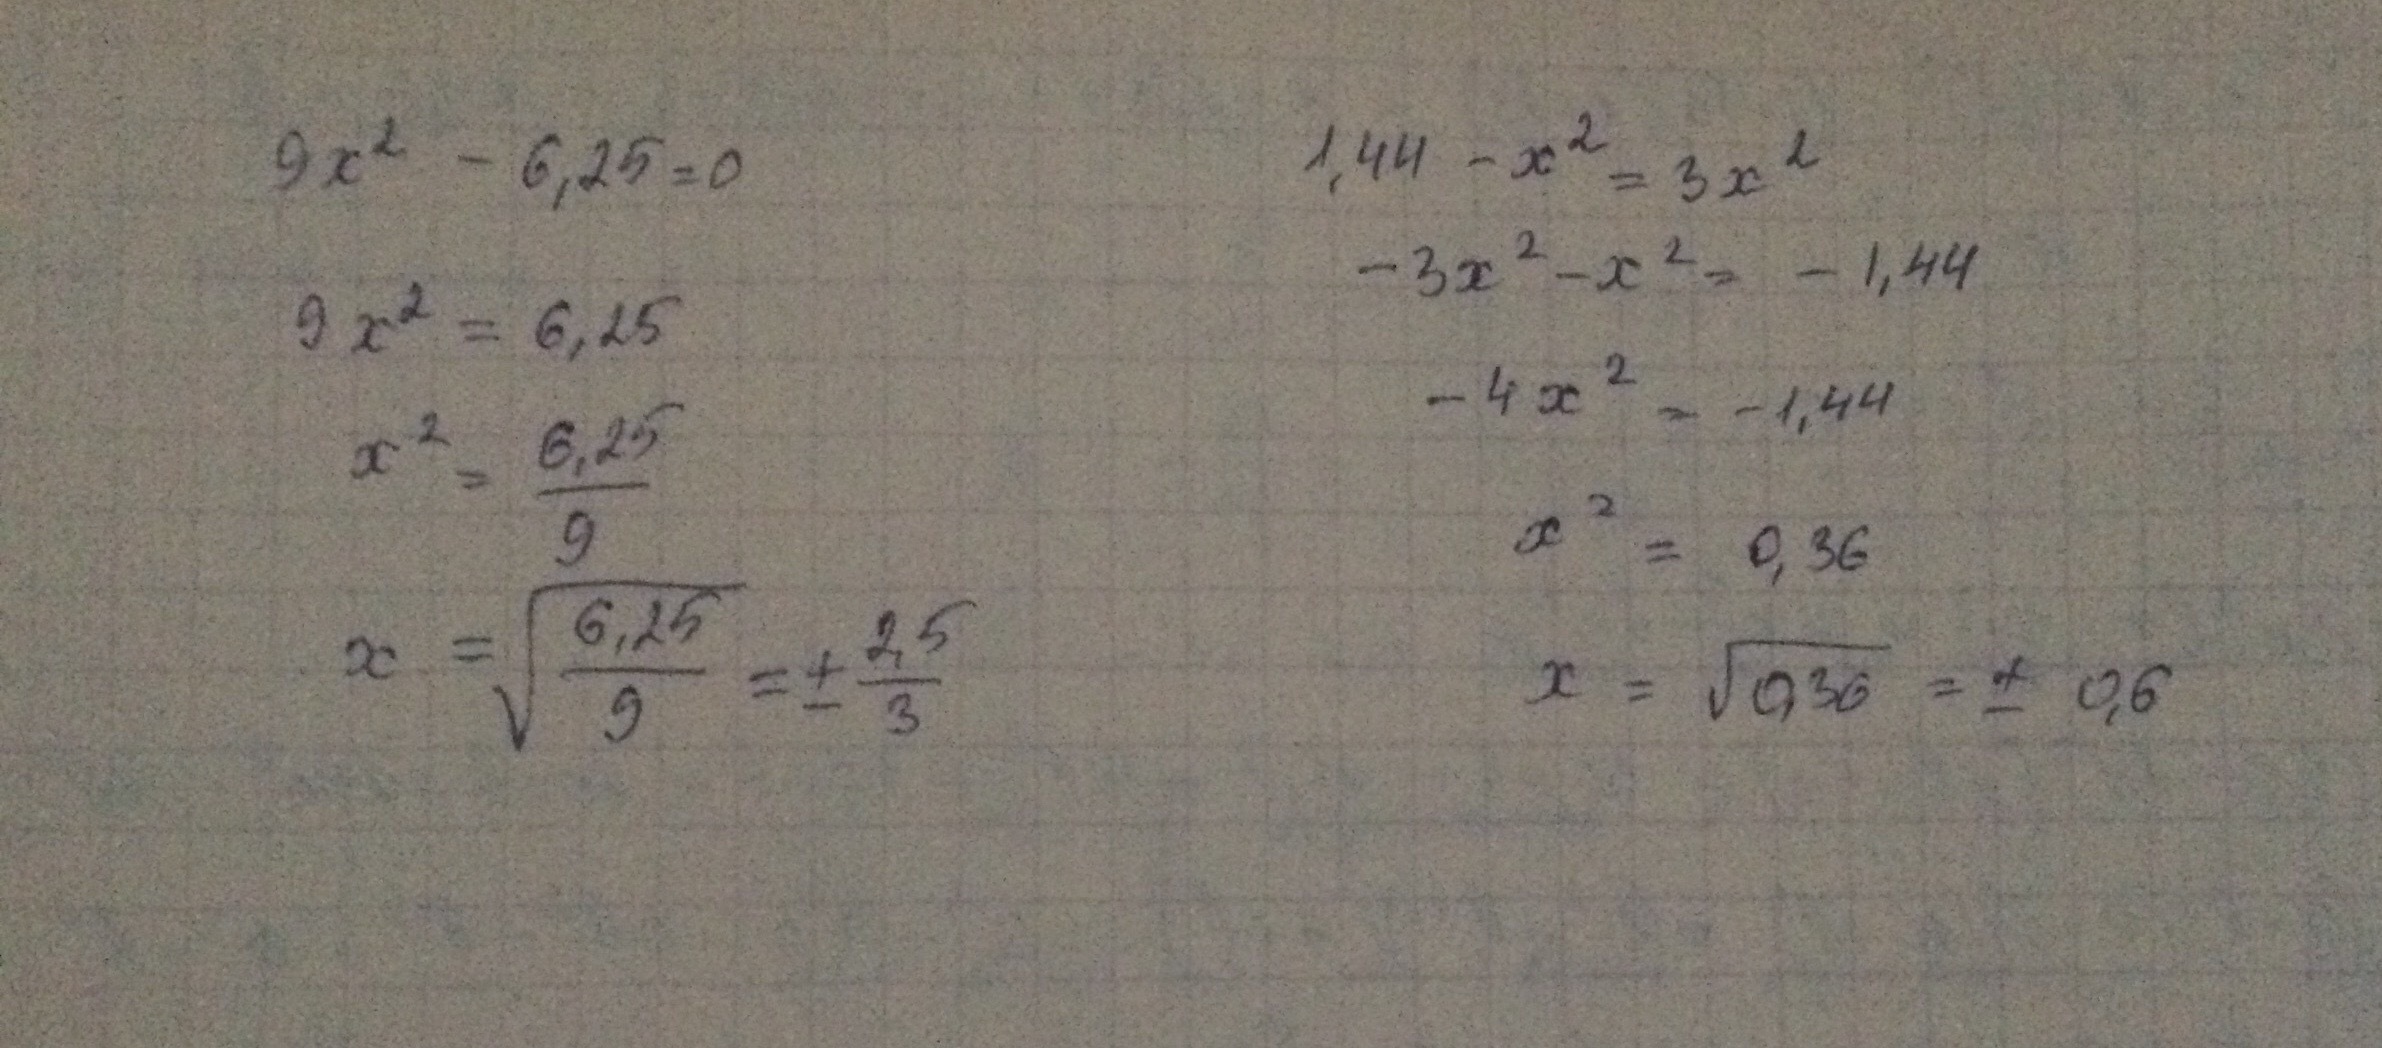 9x² - 6,25 = 0
9x² = 6,25
x² = 6,25/9
x = √(6,25/9) = ± 2,5/3
1,44 - x² = 3x²
-3x² - x² = -1,44
-4x² = -1,44
x² = 0,36
x = √0,36 = ± 0,6